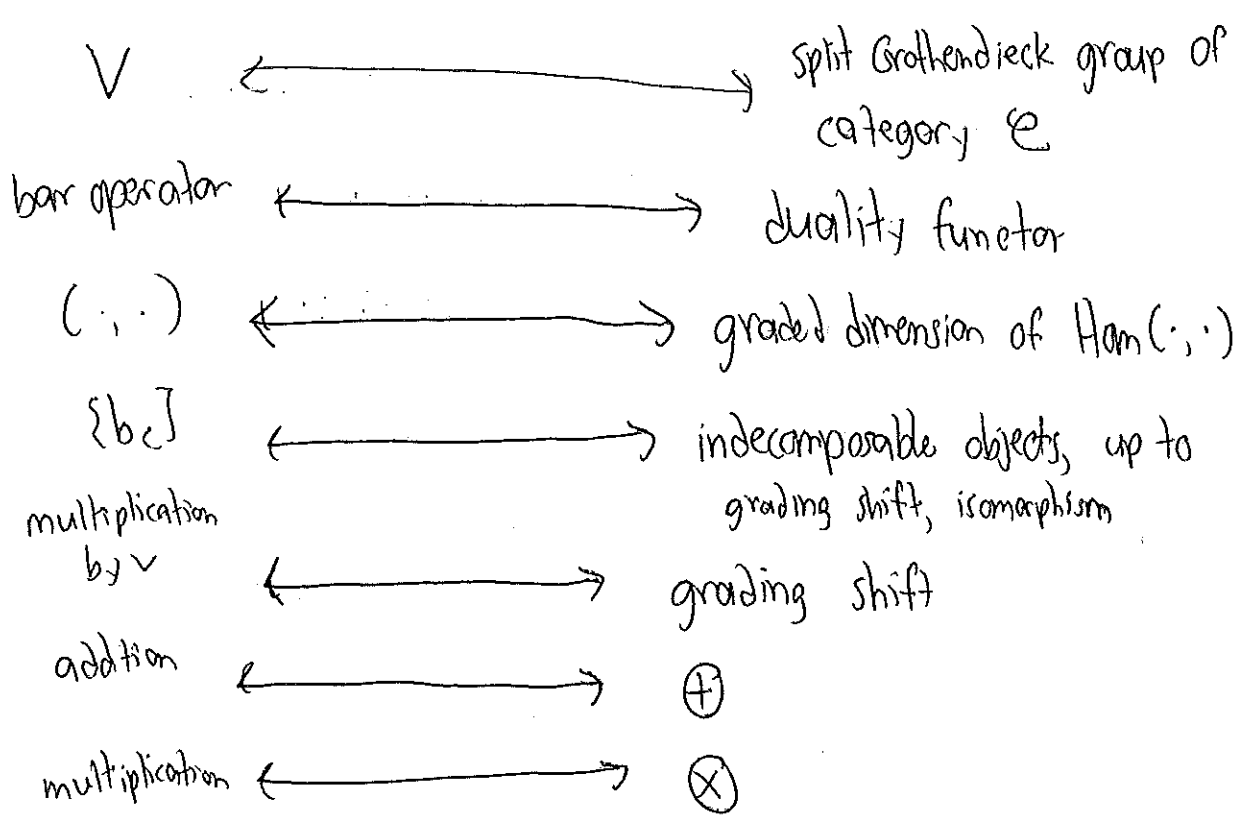 V ⟷ split Grothendieck group of
category 𝒞
bar operator ⟷ duality functor
(·, ·) ⟷ graded dimension of Hom(·, ·)
{b_c} ⟷ indecomposable objects, up to
grading shift, isomorphism
multiplication
by v ⟷ grading shift
addtion ⟷ ⊕
multiplication ⟷ ⊗